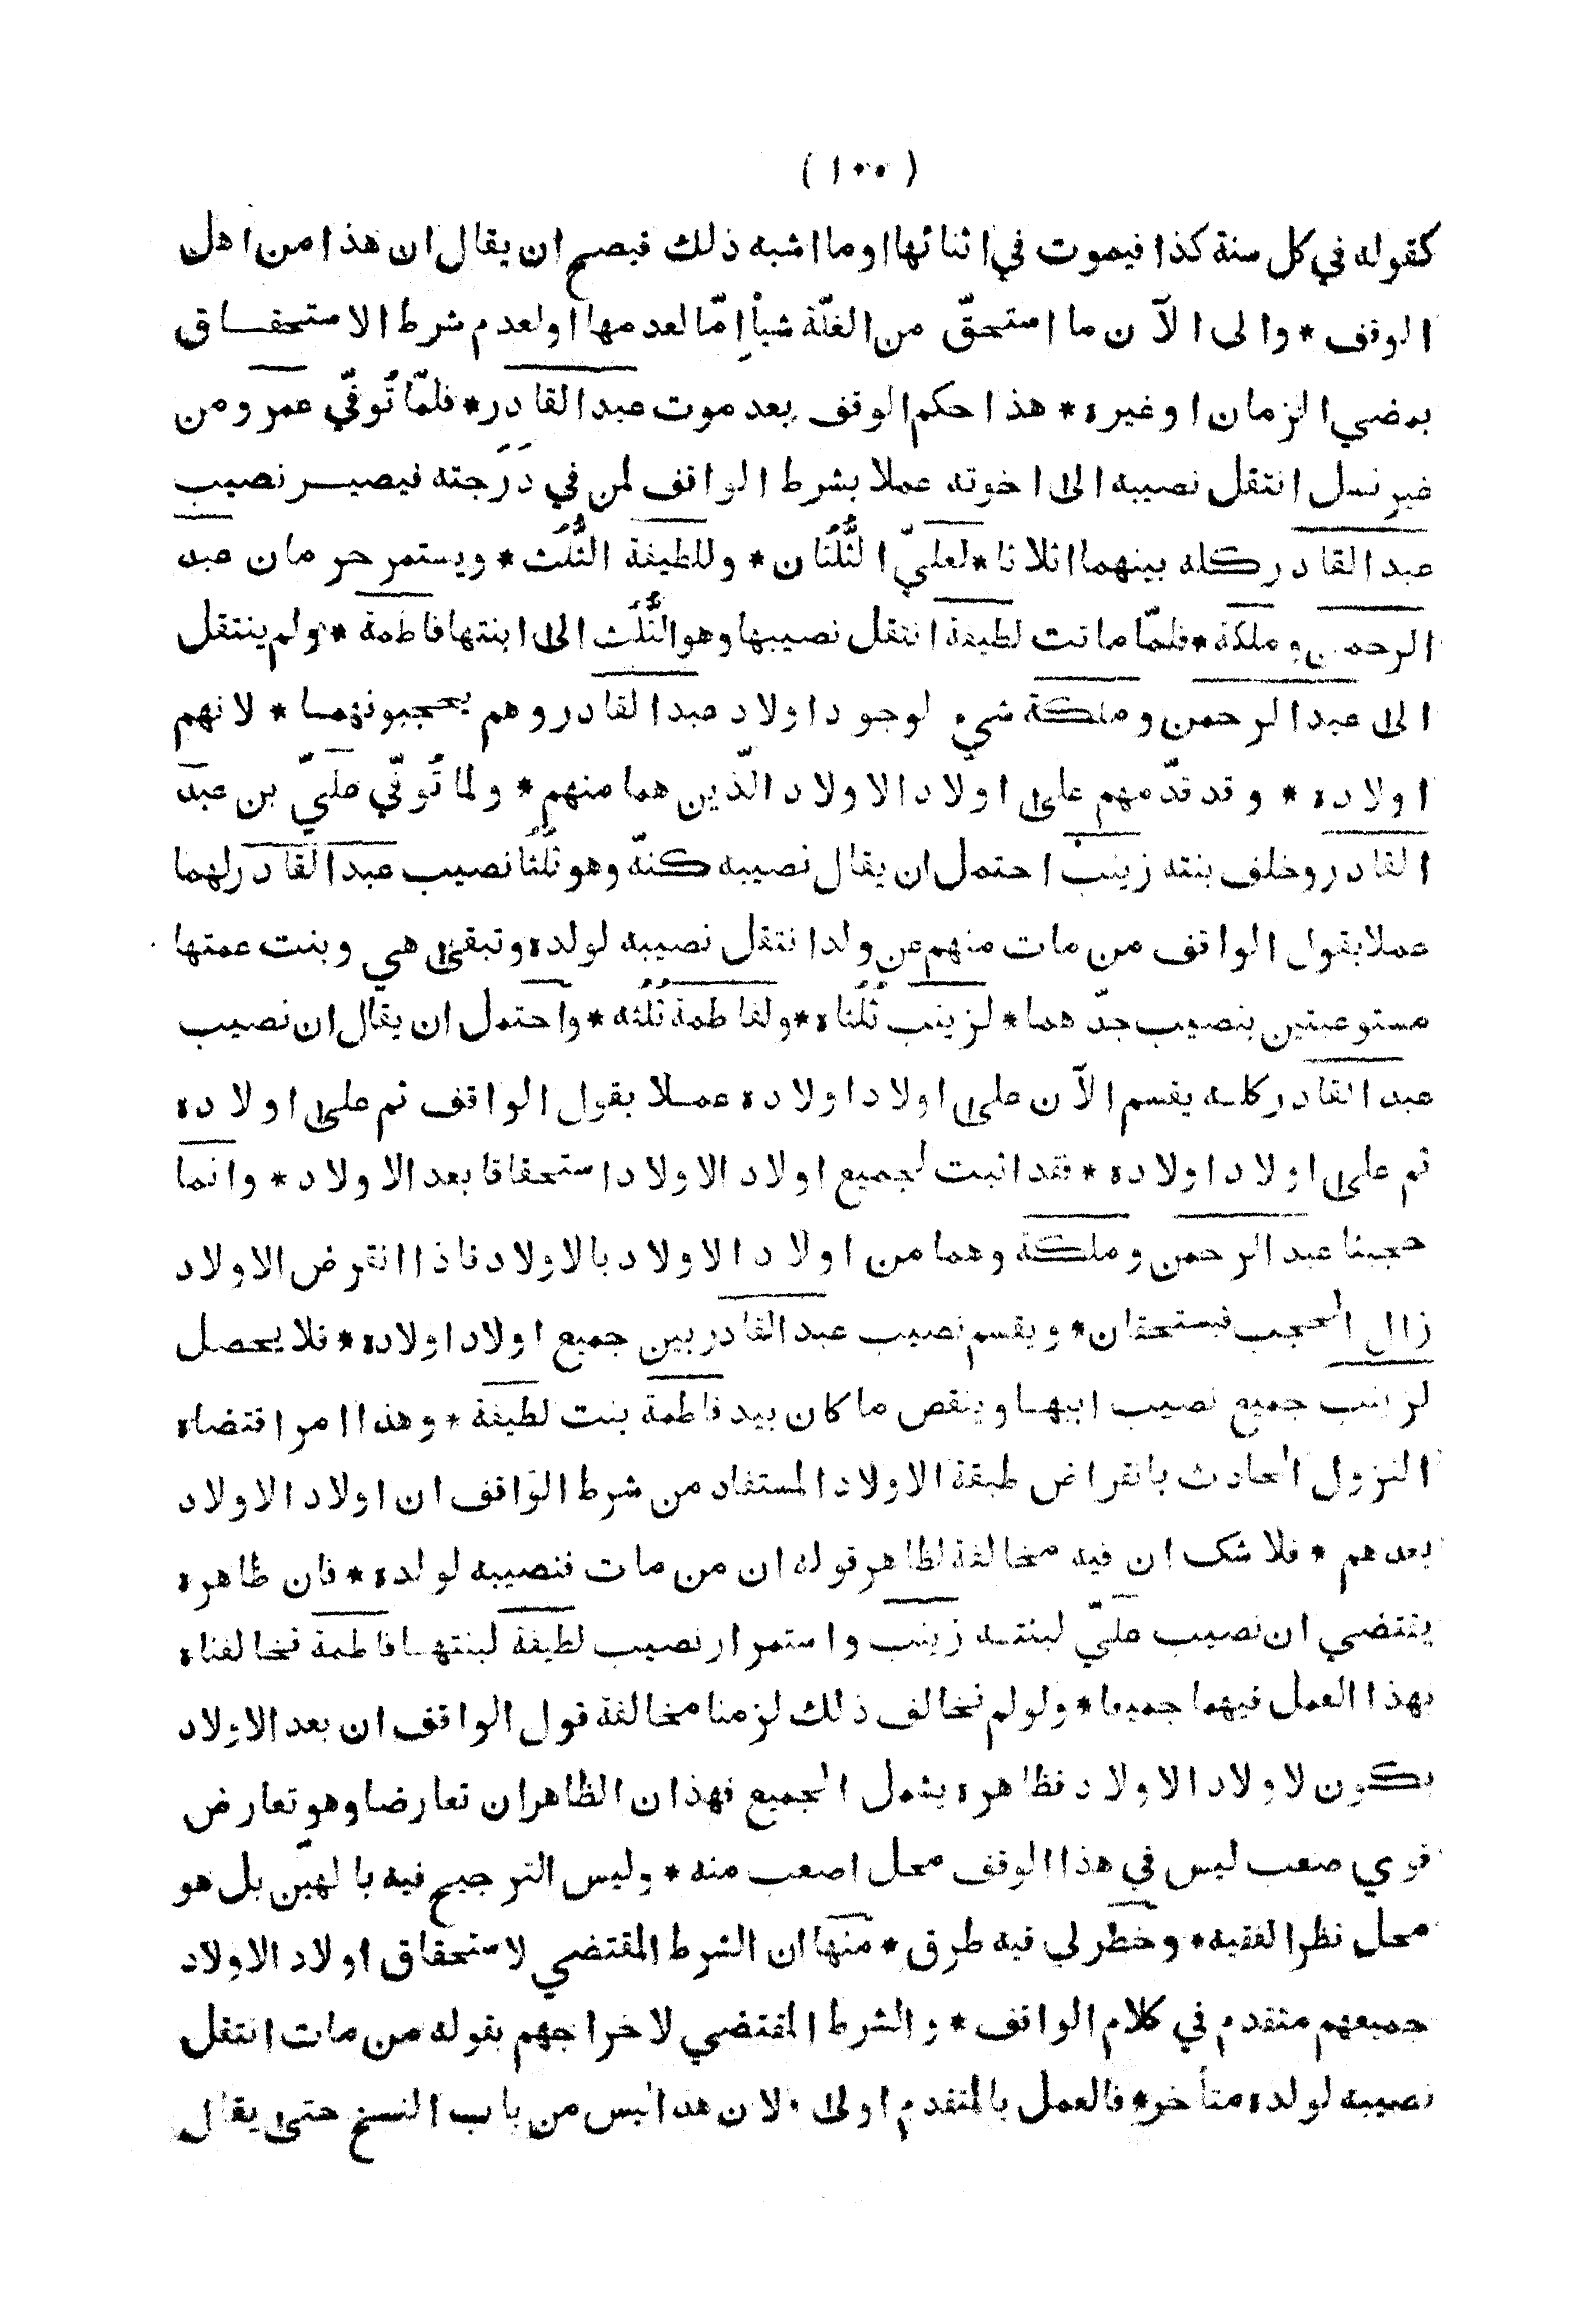 ( ١٠٠ )
كقوله في كل سنة كذا فيموت في اثنائها او ما اشبه ذلك فيصح ان يقال ان هذا من اهل
الوقف * والى الآن ما استحقّ من الغلّة شيأ إمّا لعدمها او لعدم شرط الاستحقاق
بمضي الزمان او غيره * هذا حكم الوقف بعد موت عبد القادر * فلمّا تُوفّي عمر و من
غير نسل انتقل نصيبه الى اخوته عملا بشرط الواقف لمن في دَرَجته فيصير نصيب
عبد القادر كله بينهما اثلاثا * لعليّ الثُّلُثان * وللطيفة الثُّلُث * ويستمر حرمان عبد
الرحمن وملكة * فلمّا ماتت لطيفة انتقل نصيبها وهو الثُّلُث الى ابنتها فاطمة * ولم ينتقل
الى عبد الرحمن وملكة شيء لوجود اولاد عبد القادر وهم يحجبونهما * لانهم
اولاده * وقد قدّمهم على اولاد الاولاد الّذين هما منهم * ولما تُوفّي عليّ بن عبد
القادر وخلف بنته زينب احتمل ان يقال نصيبه كلّه وهو ثُلُثا نصيب عبد القادر لهما
عملا بقول الواقف من مات منهم عن ولد انتقل نصيبه لولده وتبقى هي وبنت عمتها
مستوعبتين بنصيب جدّهما * لزينب ثُلُثاه * ولفاطمة ثُلُثه * واحتمل ان يقال ان نصيب
عبد القادر كله يقسم الآن على اولاد اولاده عملا بقول الواقف ثم على اولاده
ثم على اولاد اولاده * فقد اثبت لجميع اولاد الاولاد استحقاقا بعد الاولاد * وانما
حجبنا عبد الرحمن وملكة وهما من اولاد الاولاد بالاولاد فاذا انقرض الاولاد
زال الحجب فيستحقان * ويقسم نصيب عبد القادر بين جميع اولاد اولاده * فلا يحصل
لزينب جميع نصيب ابيها وينقص ما كان بيد فاطمة بنت لطيفة * وهذا امر اقتضاه
النزول الحادث بانقراض طبقة الاولاد المستفاد من شرط الواقف ان اولاد الاولاد
بعدهم * فلا شك ان فيه مخالفة لظاهر قوله ان من مات فنصيبه لولده * فان ظاهره
يقتضي ان نصيب عليّ لبنته زينب واستمرار نصيب لطيفة لبنتها فاطمة فخالفناه
بهذا العمل فيهما جميعا * ولو لم نخالف ذلك لزمنا مخالفة قول الواقف ان بعد الاولاد
يكون لاولاد الاولاد فظاهره يشمل الجميع فهذان الظاهران تعارضا وهو تعارض
قوي صعب ليس في هذا الوقف محل اصعب منه * وليس الترجيح فيه بالهيّن بل هو
محل نظر الفقيه * وخطر لي فيه طرق * منها ان الشرط المقتضي لاستحقاق اولاد الاولاد
جميعهم متقدم في كلام الواقف * والشرط المقتضي لاخراجهم بقوله من مات انتقل
نصيبه لولده متأخر * فالعمل بالمتقدم اولى * لان هذا ليس من باب النسخ حتى يقال